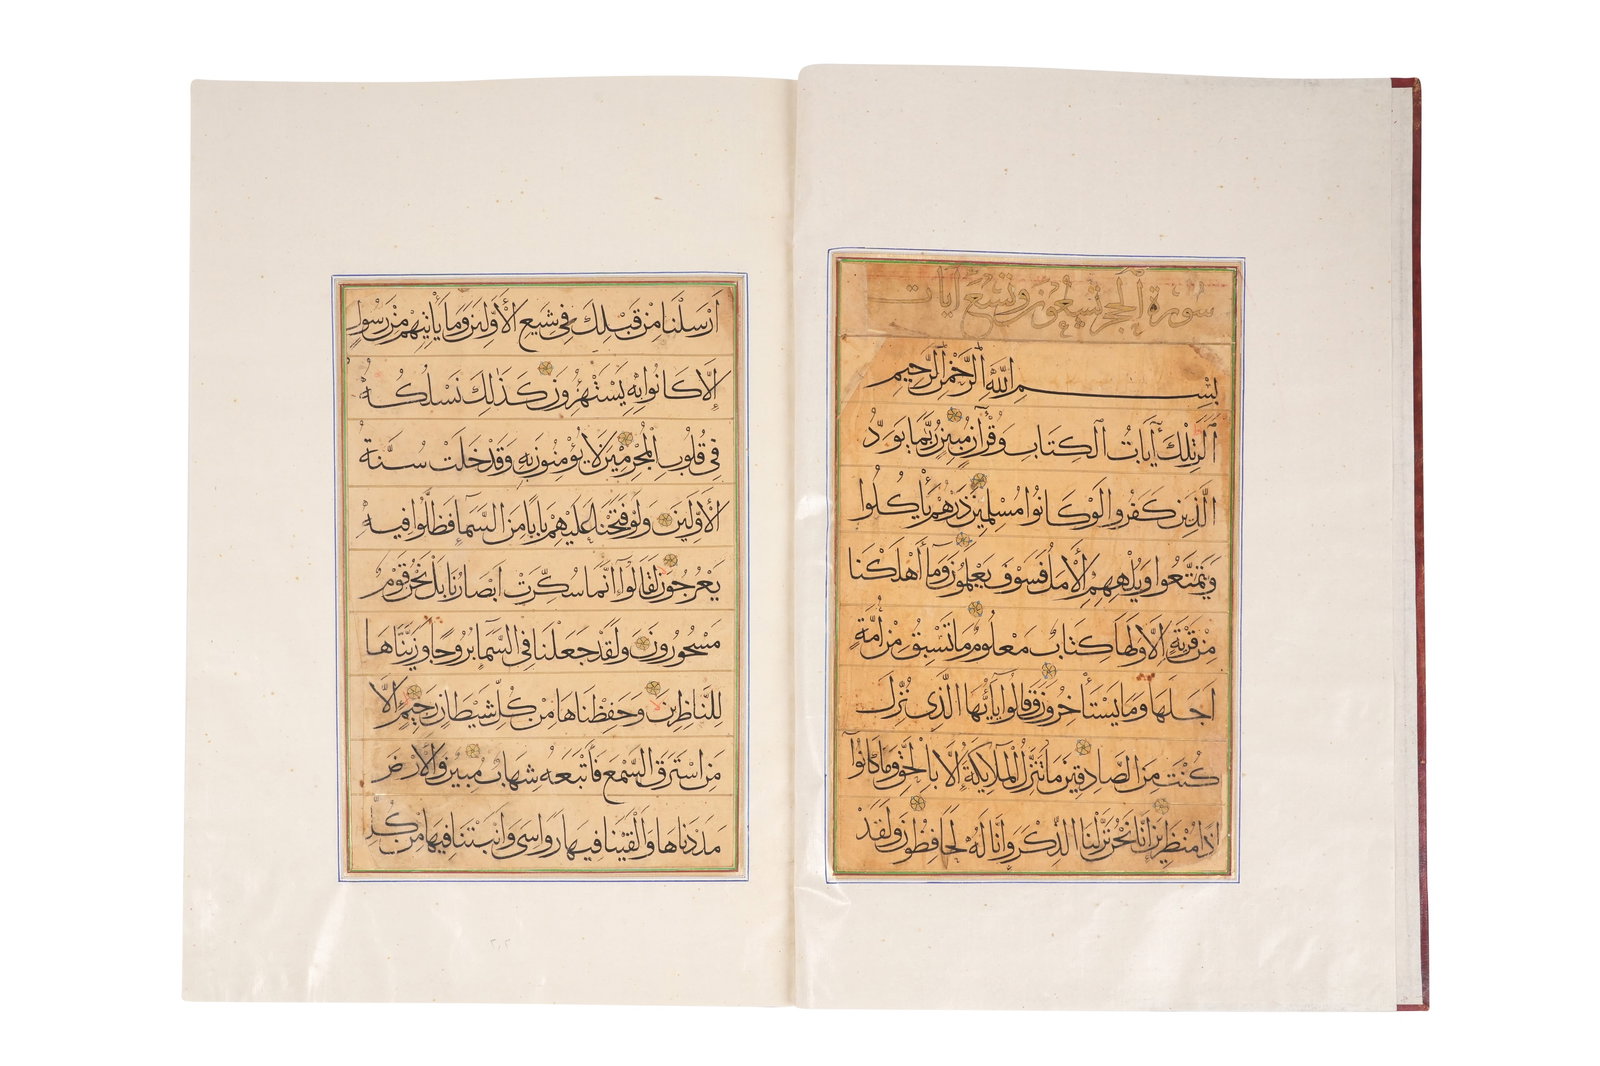 سورة الحجر تسعون وتسع آيات
بسم الله الرحمن الرحيم
الر تلك آيات الكتاب وقرآن مبين ربما يود
الذين كفروا لو كانوا مسلمين ذرهم يأكلوا
ويتمتعوا ويلههم الأمل فسوف يعلمون وما أهلكنا
من قرية إلا ولها كتاب معلوم ما تسبق من أمة
اجلها وما يستأخرون وقالوا يا أيها الذى نزل
كنت من الصادقين ما تنزل الملايكة الا بالحق وما كانوآ
اذا منظرين انا نحن نزلنا الذكر وانا له لحافظون ولقد
أرسلنا من قبلك فى شيع الأولين وما يأتيهم من رسول
إلا كانوا به يستهزؤن كذلك نسلكه
فى قلوب المجرمين لا يؤمنون به وقد خلت سنة
الأولين ولو فتحنا عليهم بابا من السمآء فظلوا فيه
يعرجون لقالوآ إنما سكرت ابصارنا بل نحن قوم
مسحورون ولقد جعلنا فى السمآء بروجا وزيناها
للناظرين وحفظناها من كل شيطان رجيم إلا
من استرق السمع فأتبعه شهاب مبين والأرض
مددناها والقينا فيها رواسى وانبتنا فيها من كل
٢٠٢